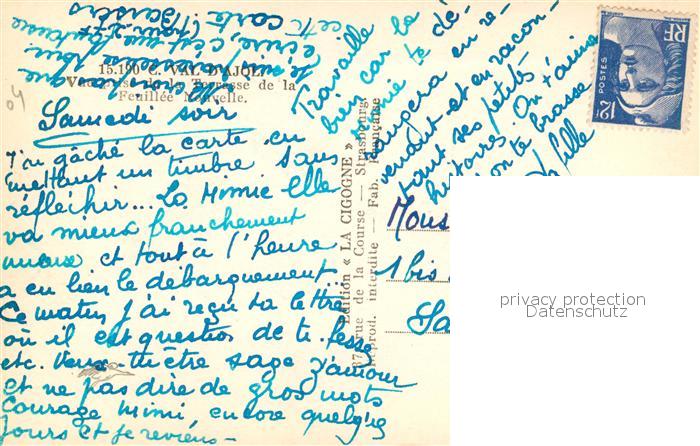 15.190 C. VAL D'AJOL
de la Terrasse de la
Feuillée Nouvelle.
Samedi soir
J'ai gâché la carte en
mettant un timbre sans
réfléchir... La Mimie Elle
va mieux franchement
mieux et tout à l'heure
a eu lieu le débarquement...
Ce matin j'ai reçu ta lettre
où il est question de ti. fesse
etc. Veux-tu être sage z'amour
et ne pas dire de gros mots
Courage mimi, encore quelq'
jours et je reviens -
Travaille
bien car la
mimie te dé-
rangera en re-
venant et en racon-
tant ses petits
histoires! On t'aime
on te brasse
fille
Mous
1 bis
Sa
Edition « LA CIGOGNE »
37, rue de la Course — Strasbourg
Reprod. interdite — Fab. Française
RF
POSTES
12F
04
privacy protection
Datenschutz